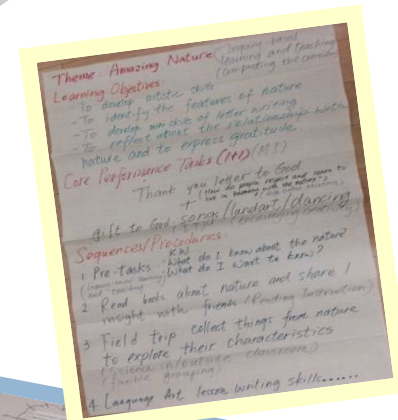 Theme: Amazing Nature (Inquiry-based
learning and teaching
Learning Objetives (Computing the
-To develop artistic skills
-To identify the features of nature
-To develop skills of letter writing
-To reflect about the relationship with
nature and to express gratitude
Core Performance Tasks (1+1) (MI)
Thank you letter to God
(How do people respect and learn to
live in harmony with the nature?)
+
gift to God: songs/landart/dancing
Sequences/Procedures:
1 Pre-tasks - KW
What do I know about the nature
What do I want to know?
and teaching
2 Read books about nature and share 1
insight with friends (Reading Instruction)
3 Field trip collect things from nature
to explore their characteristics
(Science in/outside classroom)
(flexible grouping)
4 Language Art lesson writing skills......